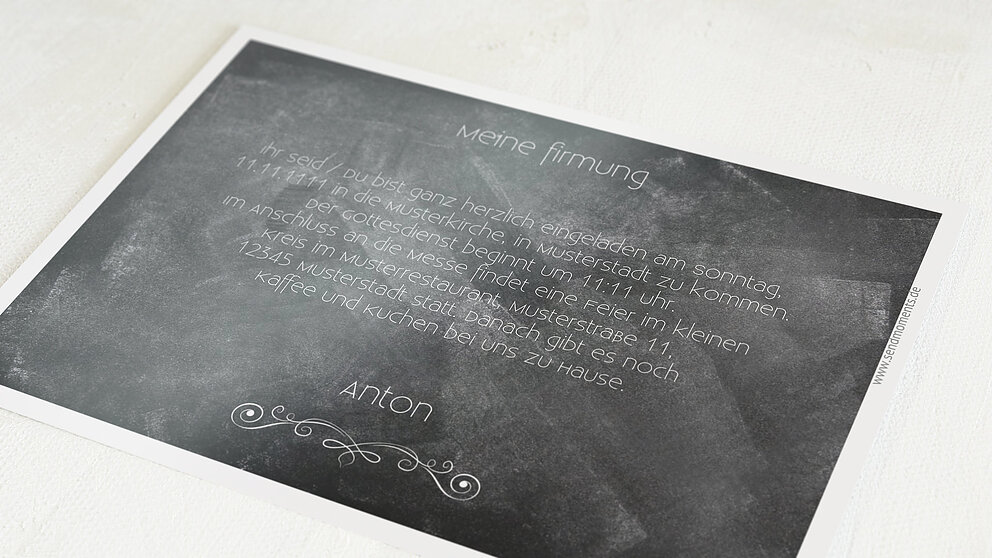 Meine Firmung
Ihr seid / Du bist ganz herzlich eingeladen am Sonntag,
11.11.1111 in die Musterkirche, in Musterstadt zu kommen.
Der Gottesdienst beginnt um 11:11 Uhr.
Im Anschluss an die Messe findet eine Feier im kleinen
Kreis im Musterrestaurant, Musterstraße 11,
12345 Musterstadt statt. Danach gibt es noch
Kaffee und Kuchen bei uns zu Hause.
Anton
www.sendmoments.de